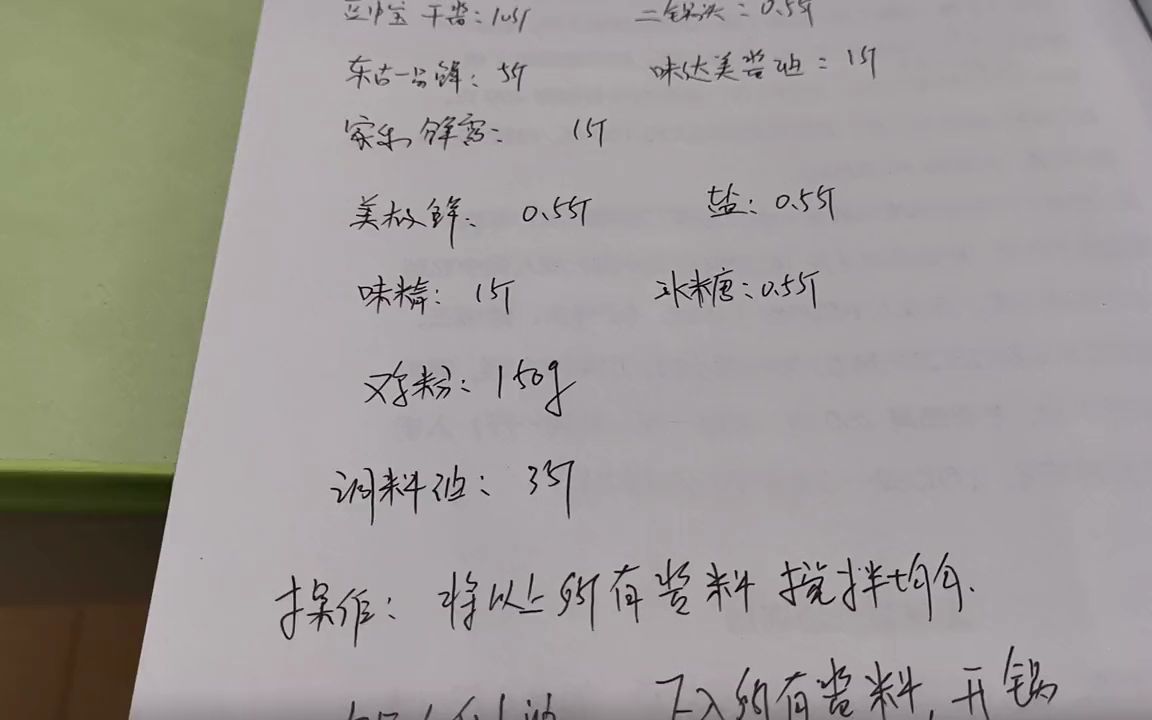 干酱：10斤 二锅头：0.5斤
东古一品鲜：5斤 味达美酱油：1斤
家乐鲜露： 1斤
美极鲜： 0.5斤 盐：0.5斤
味精： 1斤 冰糖：0.5斤
鸡粉：150g
调料油： 3斤
操作： 将以上所有酱料搅拌均匀.
下入所有酱料，开锅